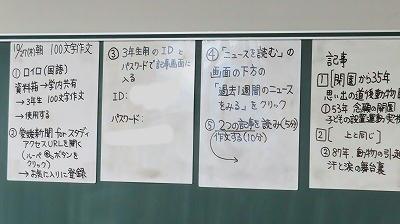 10/27(木)朝 100文字作文
① ロイロ(国語)
資料箱→学内共有
→3年生 100文字作文
→使用する
② 愛媛新聞 for スタディ
アクセスURLを開く
(ルーペ 🔍ボタンを
クリック)
→お気に入りに登録
③ 3年生用のIDと
パスワードで記事画面に
入る
ID:
パスワード:
④「ニュースを読む」の
画面の下方の
「過去1週間のニュース
をみる」をクリック
⑤ 2つの記事を読み(5分)
作文する(10分)
記事
1 [開園から35年
思い出の道後動物園
① 53年 念願の開園
子どの設置運動実
2 [ 上と同じ ]
③ 87年、動物の引
汗と涙の舞台裏